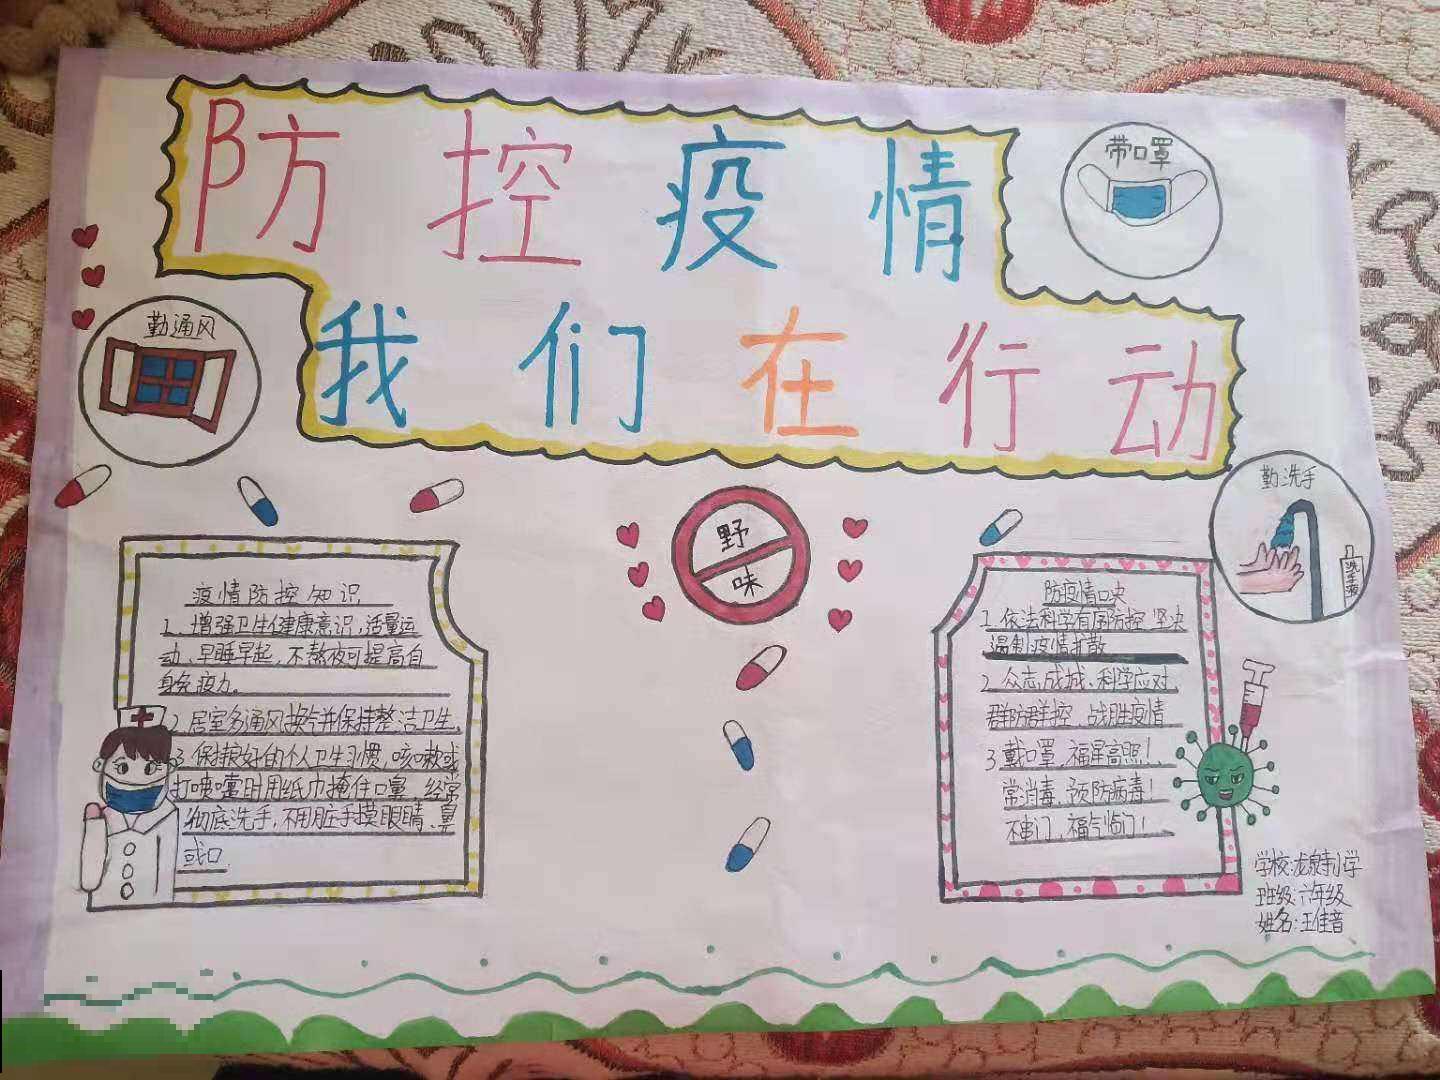 防控疫情
带口罩
我们在行动
勤通风
勤洗手
洗手液
野
味
疫情防控知识
1、增强卫生健康意识，适量运
动、早睡早起，不熬夜可提高自
身免疫力。
2、居室多通风换气并保持整洁卫生。
3、保持良好的个人卫生习惯，咳嗽或
打喷嚏时用纸巾掩住口鼻，经常
彻底洗手，不用脏手摸眼睛、鼻
或口
防疫情口决
1、依法科学有序防控，坚决
遏制疫情扩散
2、众志成城、科学应对
群防群控，战胜疫情
3、戴口罩，福星高照！
常消毒，预防病毒！
不串门，福气临门！
学校：龙泉寺小学
班级：六年级
姓名：王佳音